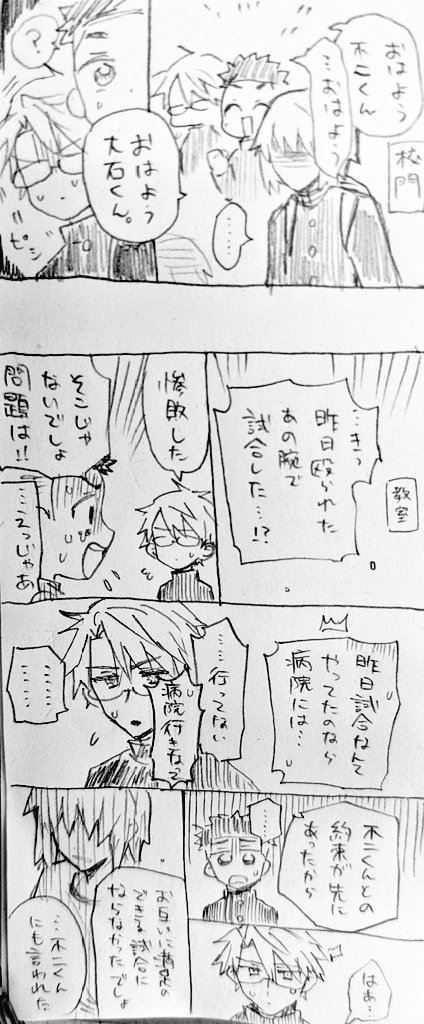 校門
おはよう
不二くん
…おはよう
……
?
おはよう
大石くん。
ピシ
教室
…きっ
昨日殴られた
あの腕で
試合した…!?
惨敗した
そこじゃ
ないでしょ
問題は!!
……えっじゃあ
昨日試合なんて
やってたのなら
病院には…
……行ってない
病院行きなって
……
不二くんとの
約束が先に
あったから
……
はあ…
お互いに満足の
できる試合に
ならなかったでしょ
…不二くん
にも言われた